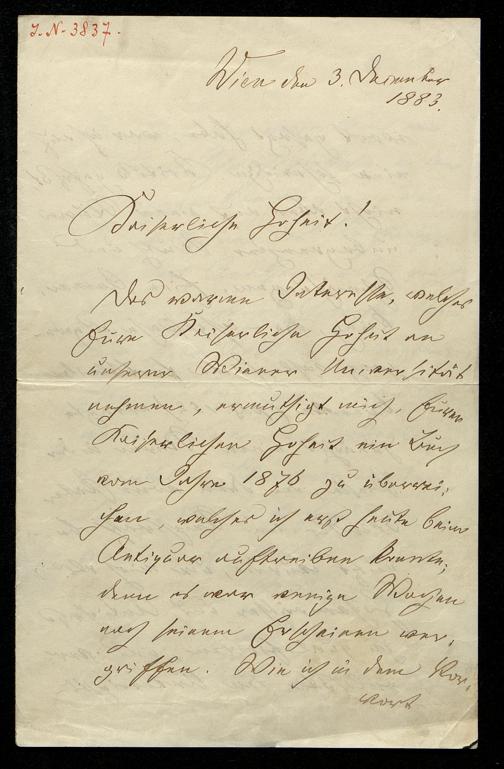 J. N. 3837.
Wien den 3. Dezember
1883.
Kaiserliche Hoheit!
Das warme Interesse, welches
Eure Kaiserliche Hoheit an
unserer Wiener Universität
nehmen, ermuthigt mich, Eurer
Kaiserlichen Hoheit ein Buch
vom Jahre 1876 zu überrei-
chen, welches ich erst heute beim
Antiquar auftreiben konnte;
denn es war wenige Wochen
nach seinem Erscheinen ver-
griffen. Wie ich in dem Vor-
wort